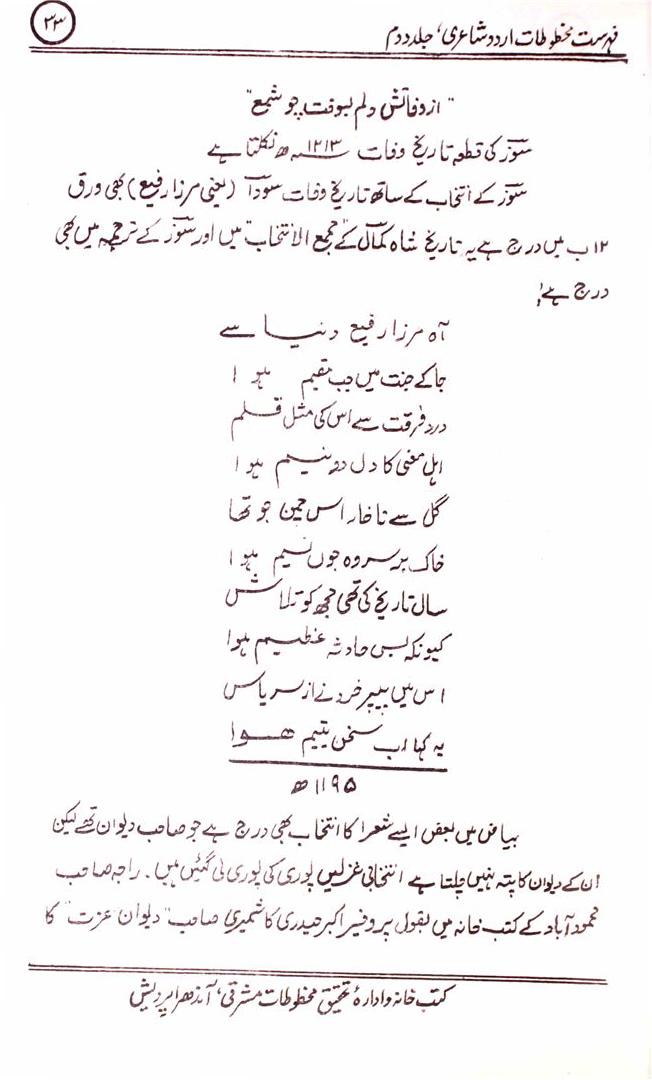 فہرست مخطوطات اردو شاعری، جلد دوم
۳۳
"از وفاتش دلم بسوخت چو شمع"
سوزؔ کی قطعہ تاریخ وفات ۱۲۱۳ھ نکلتا ہے
سوزؔ کے انتخاب کے ساتھ تاریخ وفات سوداؔ (یعنی مرزا رفیع) بھی ورق
۱۲ ب میں درج ہے یہ تاریخ شاہ کمالؔ کے "مجمع الانتخاب" میں اور سوزؔ کے ترجمہ میں بھی
درج ہے؛
آہ مرزا رفیع دنیا سے
جا کے جنت میں جب مقیم ہوا
درد فرقت سے اس کی مثل قلم
اہل معنی کا دل دو نیم ہوا
گل سے تا خار اس چمن جو تھا
خاک بر سر وہ جوں نسیم ہوا
سال تاریخ کی تھی مجھ کو تلاش
کیونکہ بس حادثہ عظیم ہوا
اس میں پیر خرد نے از سر یاس
یہ کہا اب سخن یتیم ھوا
۱۱۹۵ھ
بیاض میں بعض ایسے شعرا کا انتخاب بھی درج ہے جو صاحب دیوان تھے لیکن
ان کے دیوان کا پتہ نہیں چلتا ہے انتخابی غزلیں پوری کی پوری لی گئیں ہیں۔ راجہ صاحب
محمود آباد کے کتب خانہ میں بقول پروفیسر اکبر حیدری کاشمیری صاحب "دیوان عزت" کا
کتب خانہ و ادارۂ تحقیق مخطوطات مشرقی، آندھرا پردیش